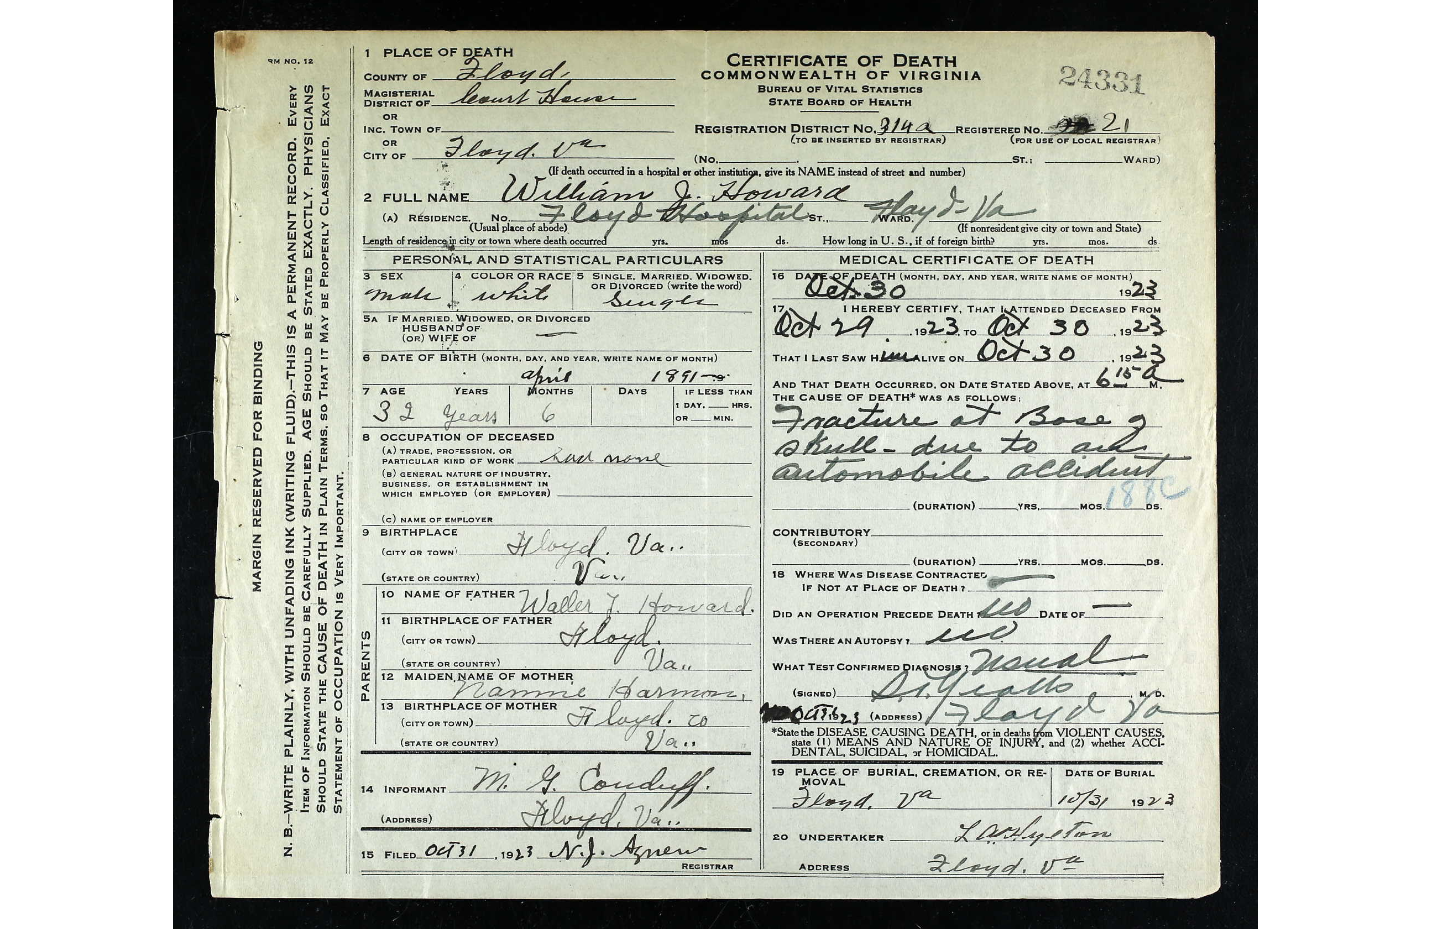 RM NO. 12
MARGIN RESERVED FOR BINDING
N. B.—WRITE PLAINLY, WITH UNFADING INK (WRITING FLUID).—THIS IS A PERMANENT RECORD. EVERY
ITEM OF INFORMATION SHOULD BE CAREFULLY SUPPLIED. AGE SHOULD BE STATED EXACTLY. PHYSICIANS
SHOULD STATE THE CAUSE OF DEATH IN PLAIN TERMS, SO THAT IT MAY BE PROPERLY CLASSIFIED. EXACT
STATEMENT OF OCCUPATION IS VERY IMPORTANT.
1 PLACE OF DEATH
COUNTY OF Floyd,
MAGISTERIAL DISTRICT OF Court House
OR
INC. TOWN OF
OR
CITY OF Floyd. Va
CERTIFICATE OF DEATH
COMMONWEALTH OF VIRGINIA
BUREAU OF VITAL STATISTICS
STATE BOARD OF HEALTH
24331
REGISTRATION DISTRICT NO. 314a REGISTERED NO. 21
(TO BE INSERTED BY REGISTRAR) (FOR USE OF LOCAL REGISTRAR)
(No. ST.; WARD)
(If death occurred in a hospital or other institution, give its NAME instead of street and number)
2 FULL NAME William J. Howard
(A) RESIDENCE. No. Floyd Hospital ST., WARD. Floyd-Va
(Usual place of abode) (If nonresident give city or town and State)
Length of residence in city or town where death occurred yrs. mos ds. How long in U. S., if of foreign birth? yrs. mos. ds
PERSONAL AND STATISTICAL PARTICULARS
3 SEX 4 COLOR OR RACE 5 SINGLE, MARRIED, WIDOWED,
OR DIVORCED (write the word)
Male white Single
5A IF MARRIED, WIDOWED, OR DIVORCED
HUSBAND OF
(OR) WIFE OF —
6 DATE OF BIRTH (MONTH, DAY, AND YEAR, WRITE NAME OF MONTH)
april 1891
7 AGE YEARS MONTHS DAYS IF LESS THAN
1 DAY, HRS.
OR MIN.
32 years 6
8 OCCUPATION OF DECEASED
(A) TRADE, PROFESSION, OR
PARTICULAR KIND OF WORK had none
(B) GENERAL NATURE OF INDUSTRY,
BUSINESS, OR ESTABLISHMENT IN
WHICH EMPLOYED (OR EMPLOYER)
(C) NAME OF EMPLOYER
9 BIRTHPLACE
(CITY OR TOWN) Floyd. Va..
(STATE OR COUNTRY) Va..
PARENTS
10 NAME OF FATHER Walter T. Howard.
11 BIRTHPLACE OF FATHER
(CITY OR TOWN) Floyd.
(STATE OR COUNTRY) Va..
12 MAIDEN NAME OF MOTHER
Nannie Harmon,
13 BIRTHPLACE OF MOTHER
(CITY OR TOWN) Floyd. co
(STATE OR COUNTRY) Va..
14 INFORMANT M. G. Conduff.
(ADDRESS) Floyd, Va..
15 FILED Oct 31, 1923 N. J. Agnew
REGISTRAR
MEDICAL CERTIFICATE OF DEATH
16 DATE OF DEATH (MONTH, DAY, AND YEAR, WRITE NAME OF MONTH)
Oct. 30 1923
17 I HEREBY CERTIFY, THAT I ATTENDED DECEASED FROM
Oct 29, 1923 TO Oct 30, 1923
THAT I LAST SAW Him ALIVE ON Oct 30, 1923
AND THAT DEATH OCCURRED, ON DATE STATED ABOVE, AT 6 15 a M.
THE CAUSE OF DEATH* WAS AS FOLLOWS:
Fracture at Base of
skull - due to an
automobile accident
188C
(DURATION) YRS. MOS. DS.
CONTRIBUTORY
(SECONDARY)
(DURATION) YRS. MOS. DS.
18 WHERE WAS DISEASE CONTRACTED
IF NOT AT PLACE OF DEATH?
DID AN OPERATION PRECEDE DEATH? no DATE OF —
WAS THERE AN AUTOPSY? no
WHAT TEST CONFIRMED DIAGNOSIS? usual
(SIGNED) , M. D.
Oct 31 1923 (ADDRESS) Floyd Va
*State the DISEASE CAUSING DEATH, or in deaths from VIOLENT CAUSES,
state (1) MEANS AND NATURE OF INJURY, and (2) whether ACCI-
DENTAL, SUICIDAL, or HOMICIDAL.
19 PLACE OF BURIAL, CREMATION, OR RE-
MOVAL DATE OF BURIAL
Floyd. Va 10/31 1923
20 UNDERTAKER Hylton
ADDRESS Floyd. Va